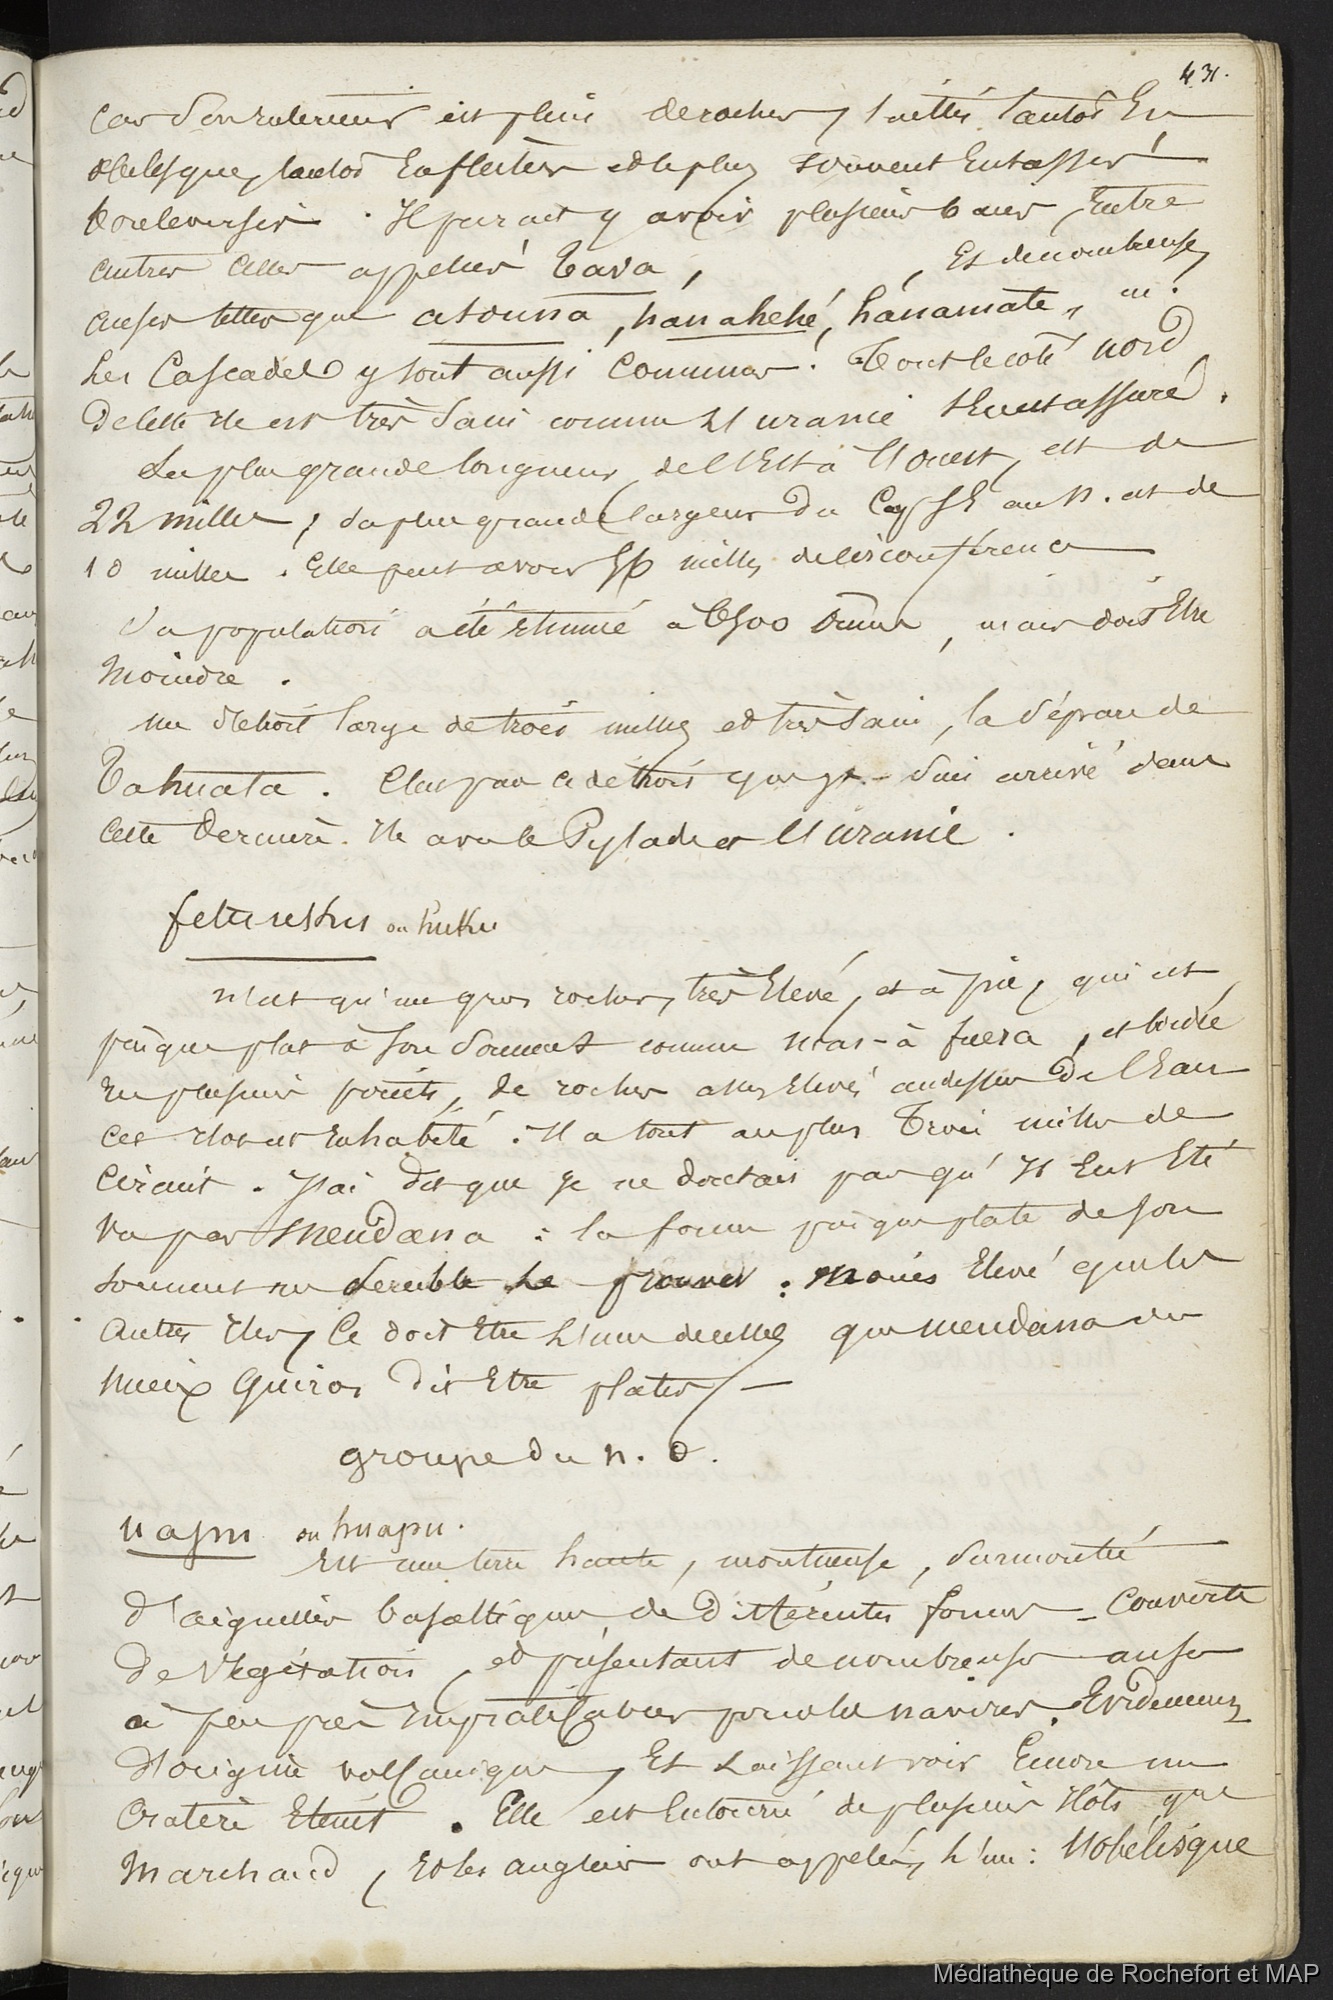 431.
car son interieur est plein de rochers, taillés tantôt En
obelisque, tantôt En flèches et le plus souvent Entassés
bouleversés. Il parait y avoir plusieurs baies, Entre
autres celles appelées Tava, , Et de nombreuses
anses telles que atouna, hanahehé, hanamate, "".
Les Cascades y sont aussi Communes. Tout le coté nord
De cette ile est très sain comme l'Uranie s'en est assuré.
La plus grande longueur, de l'Est à l'Ouest, est de
22 milles; sa plus grande largeur du Cap SE au N. est de
10 milles. Elle peut avoir milles de circonférence
Sa population a été Estimée à 6500 âmes, mais doit Etre
Moindre.
un détroit large de trois milles et très sain, la sépare de
Tahuata. C'est par ce détroit que je suis arrivé dans
cette dernière. Il a vu le Pylade et l'Uranie.
fettuuhu ou huhu
n'est qu'un gros rocher, très Elevé, et à pic, qui est
presque plat à son sommet comme Mas-à fuera, et bordé
En plusieurs points, de roches assez Elevées au dessus De l'Eau
cet ilot est inhabité. Il a tout au plus Trois milles de
Circuit. J'ai dit que je ne doutais pas qu'il Eut Eté
Vu par Mendana : la forme presque plate de son
sommet me semble le prouver : Moins Elevé que les
autres iles, Ce doit Etre l'une de celles que Mendana ou
mieux Quiros dit Etre plates, —
groupe du N. O.
Uapu ou huapu.
Est une terre haute, montueuse, surmontée
D'aiguilles basaltiques de Différentes formes - Couverte
De Végétation, et présentant de nombreuses anses
à peu près impraticables pour les navires. Evidemment
D'origine volcanique, Et Laissant voir Encore un
Cratère Eteint. Elle est Entourée de plusieurs ilots que
Marchand, et les anglais ont appelés, l'un : l'obélisque
Médiathèque de Rochefort et MAP